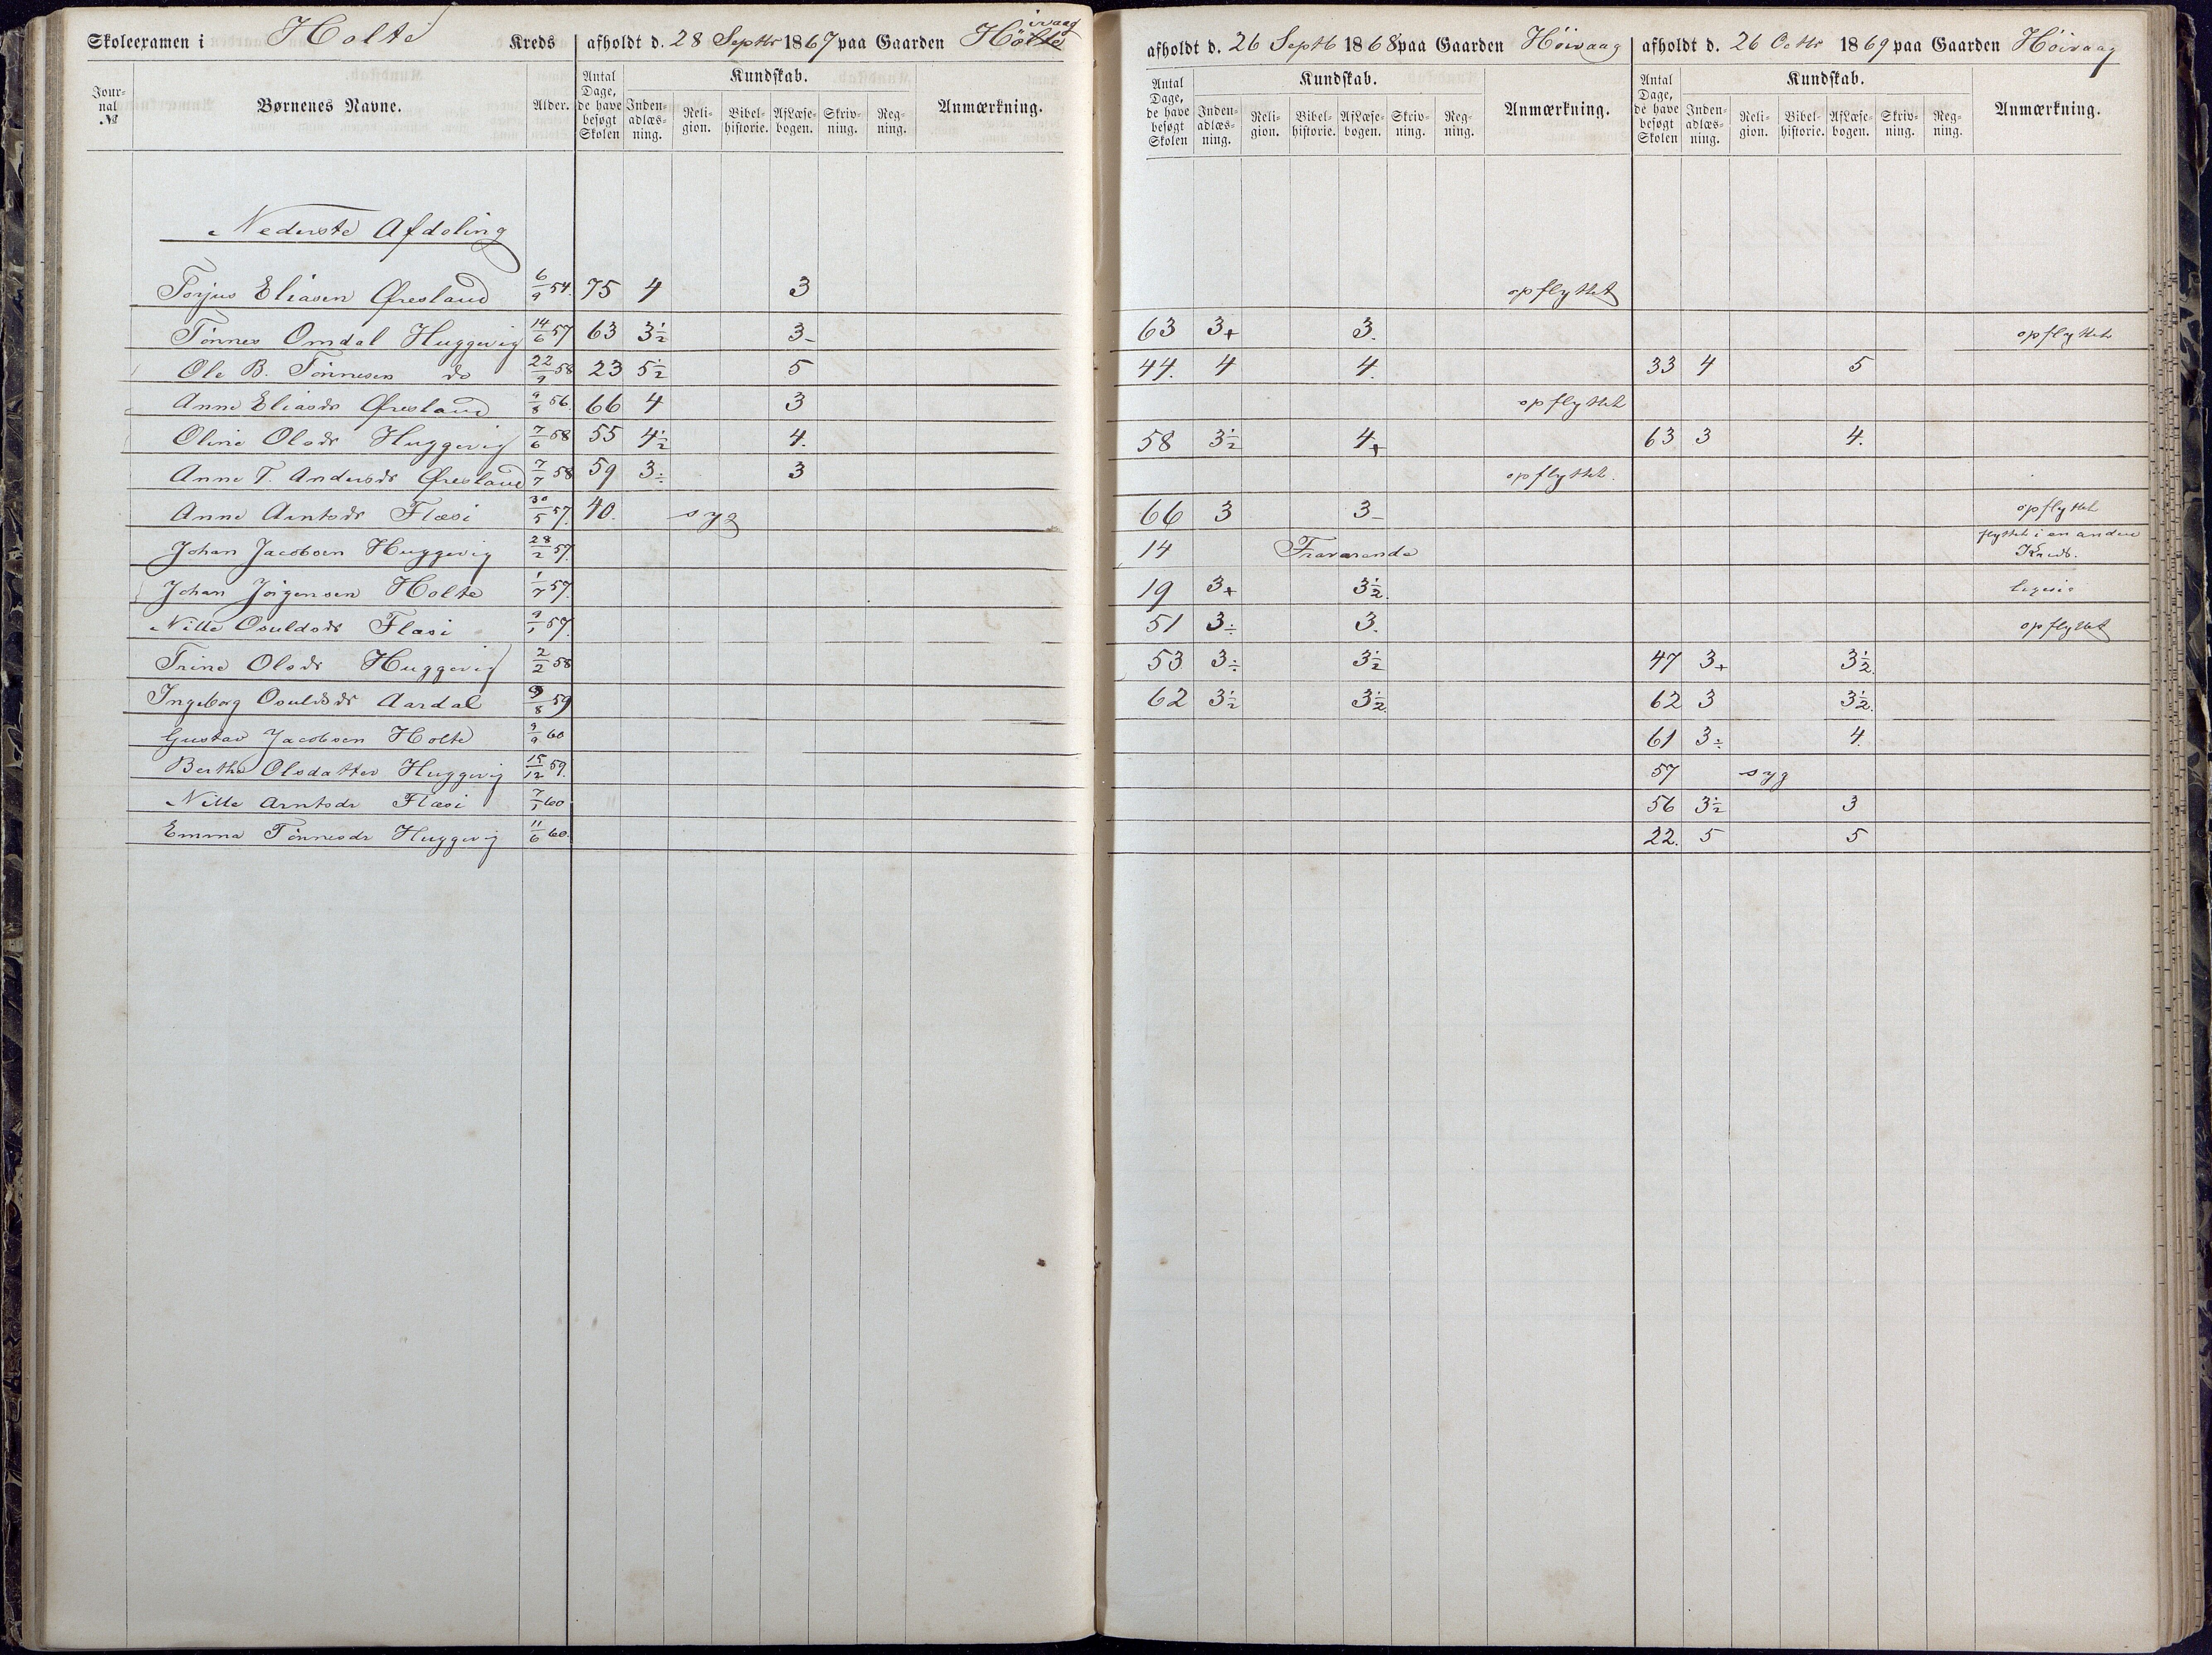 Skoleexamen i Holte Kreds afholdt d. 28 Septbr 1867 paa Gaarden Höivaag afholdt d. 26 Septb 1868 paa Gaarden Höivaag afholdt d. 26 Octbr 1869 paa Gaarden Höivaag
Journal № Børnenes Navne. Alder. Antal Dage, de have besøgt Skolen Kundskab. Indenadlæsning. Religion. Bibelhistorie. Af Læsebogen. Skrivning. Regning. Anmærkning.
Antal Dage, de have besøgt Skolen Kundskab. Indenadlæsning. Religion. Bibelhistorie. Af Læsebogen. Skrivning. Regning. Anmærkning.
Antal Dage, de have besøgt Skolen Kundskab. Indenadlæsning. Religion. Bibelhistorie. Af Læsebogen. Skrivning. Regning. Anmærkning.
Nederste Afdeling
Torjus Eliasen Øresland 6/9 54. 75 4 3 opflyttet
Tönnes Omdal Huggevig 14/6 57 63 3½ 3- 63 3+ 3. opflyttet
Ole B. Tönnesen do 22/9 58 23 5½ 5 44. 4 4. 33 4 5
Anne Eliasdr Øresland 9/8 56. 66 4 3 opflyttet
Oline Olsdr Huggevig 7/6 58 55 4½ 4. 58 3½ 4+ 63 3 4.
Anne T. Andersdr Øresland 7/7 58 59 3÷ 3 opflyttet.
Anne Arntsdr Flæsi 30/5 57. 40. syg 66 3 3- opflyttet
Johan Jacobsen Huggevig 28/2 57. 14 Fraværende flyttet i en anden
Kreds.
Johan Jörgensen Holte 1/7 57. 19 3+ 3½. ligesaa
Nille Osuldsdr Flæsi 9/1 57. 51 3÷ 3. opflyttet
Trine Olsdr Huggevig 2/2 58 53 3÷ 3½ 47 3+ 3½.
Ingeborg Osuldsdr Aardal 9/8 59 62 3½ 3½. 62 3 3½.
Gustav Jacobsen Holte 9/9 60 61 3÷ 4.
Berthe Olsdatter Huggevig 15/12 59. 57 syg
Nille Arntsdr Flæsi 7/1 60 56 3½ 3
Emma Tönnesdr Huggevig 11/6 60. 22. 5 5